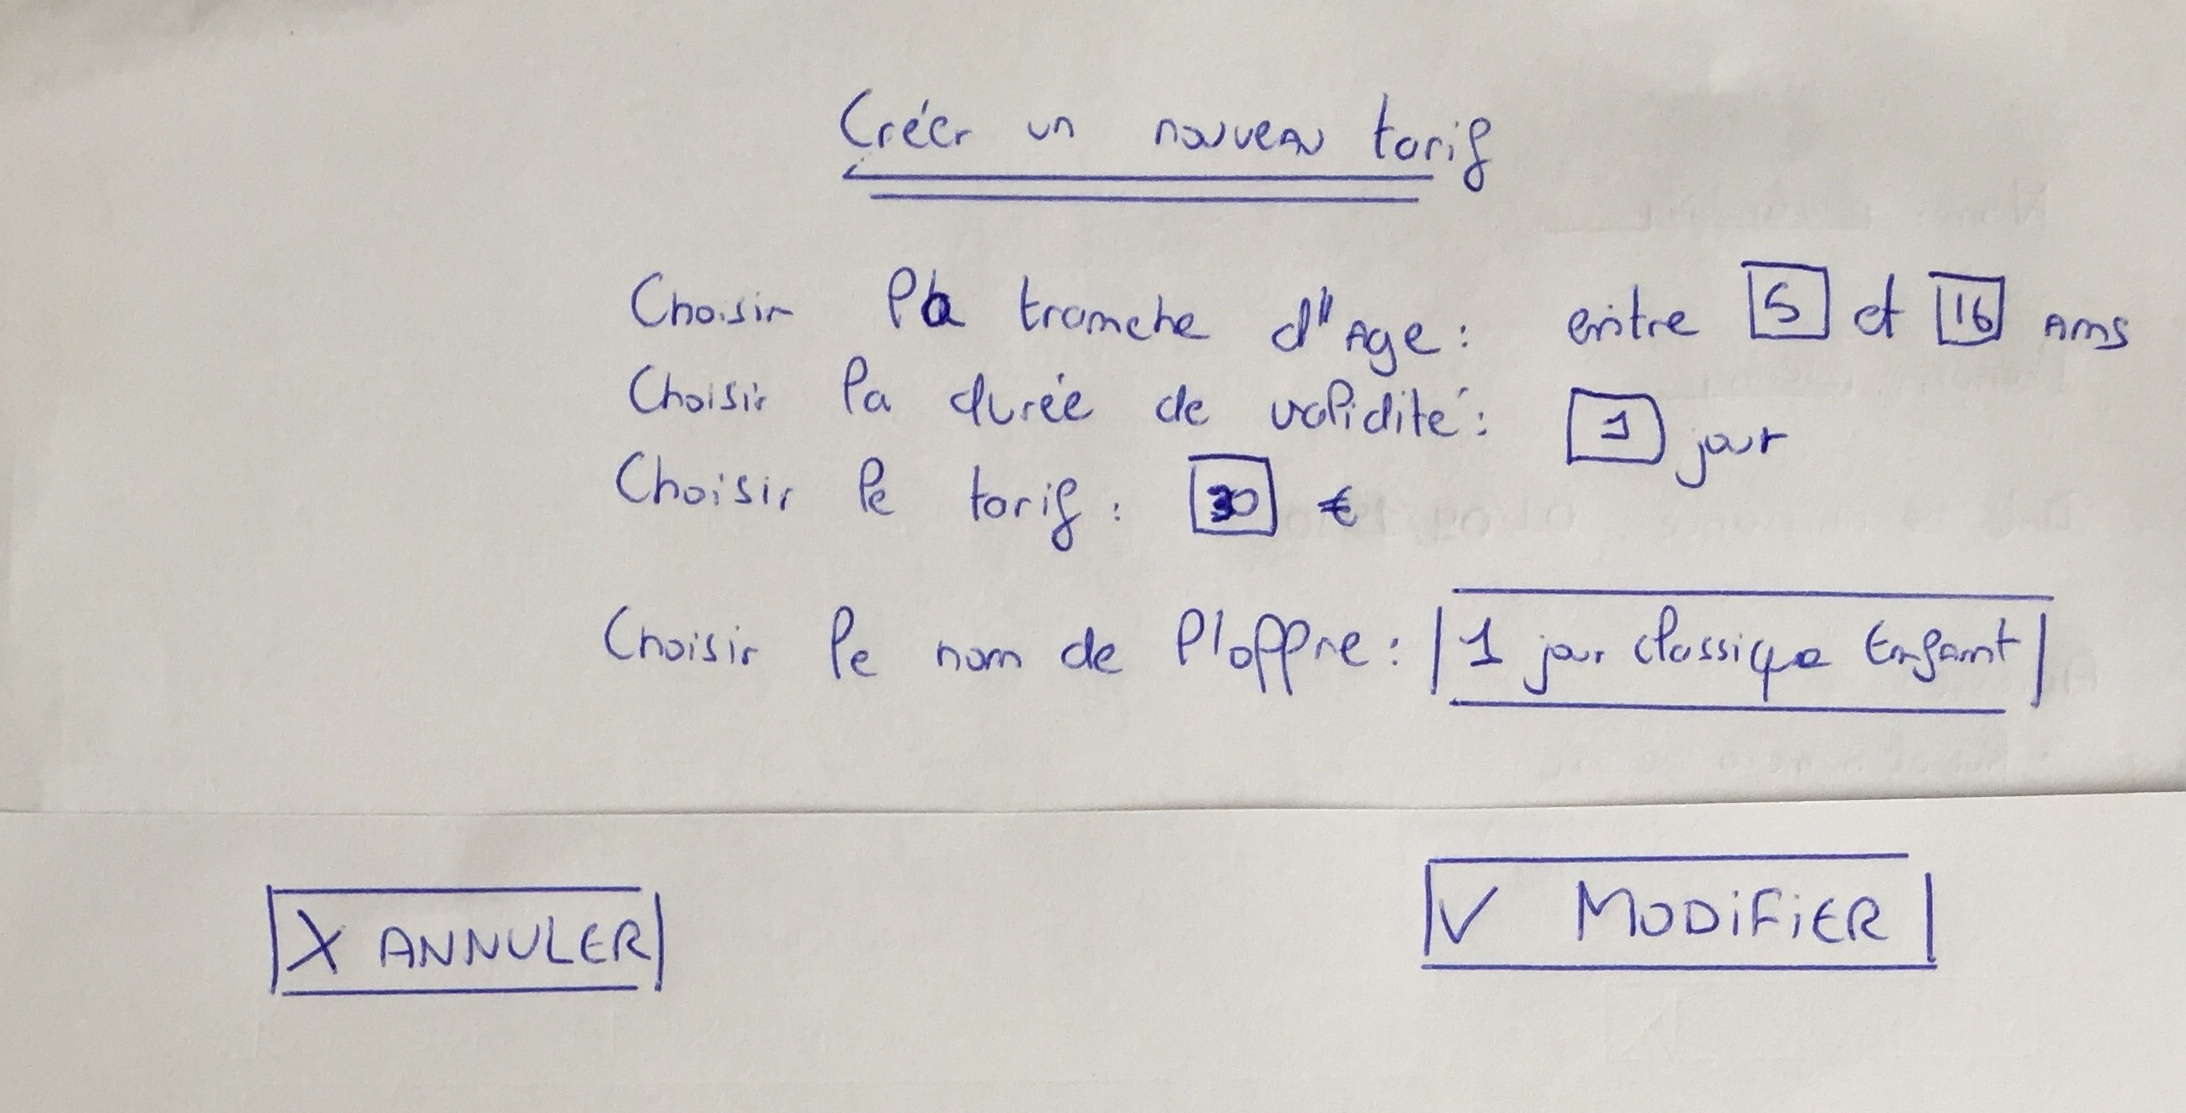 Créer un nouveau tarif
Choisir la tranche d'Age : entre 5 et 16 ans
Choisir la durée de validité : 1 jour
Choisir le tarif : 30 €
Choisir le nom de l'offre : 1 jour classique Enfant
X ANNULER
✓ MODIFIER